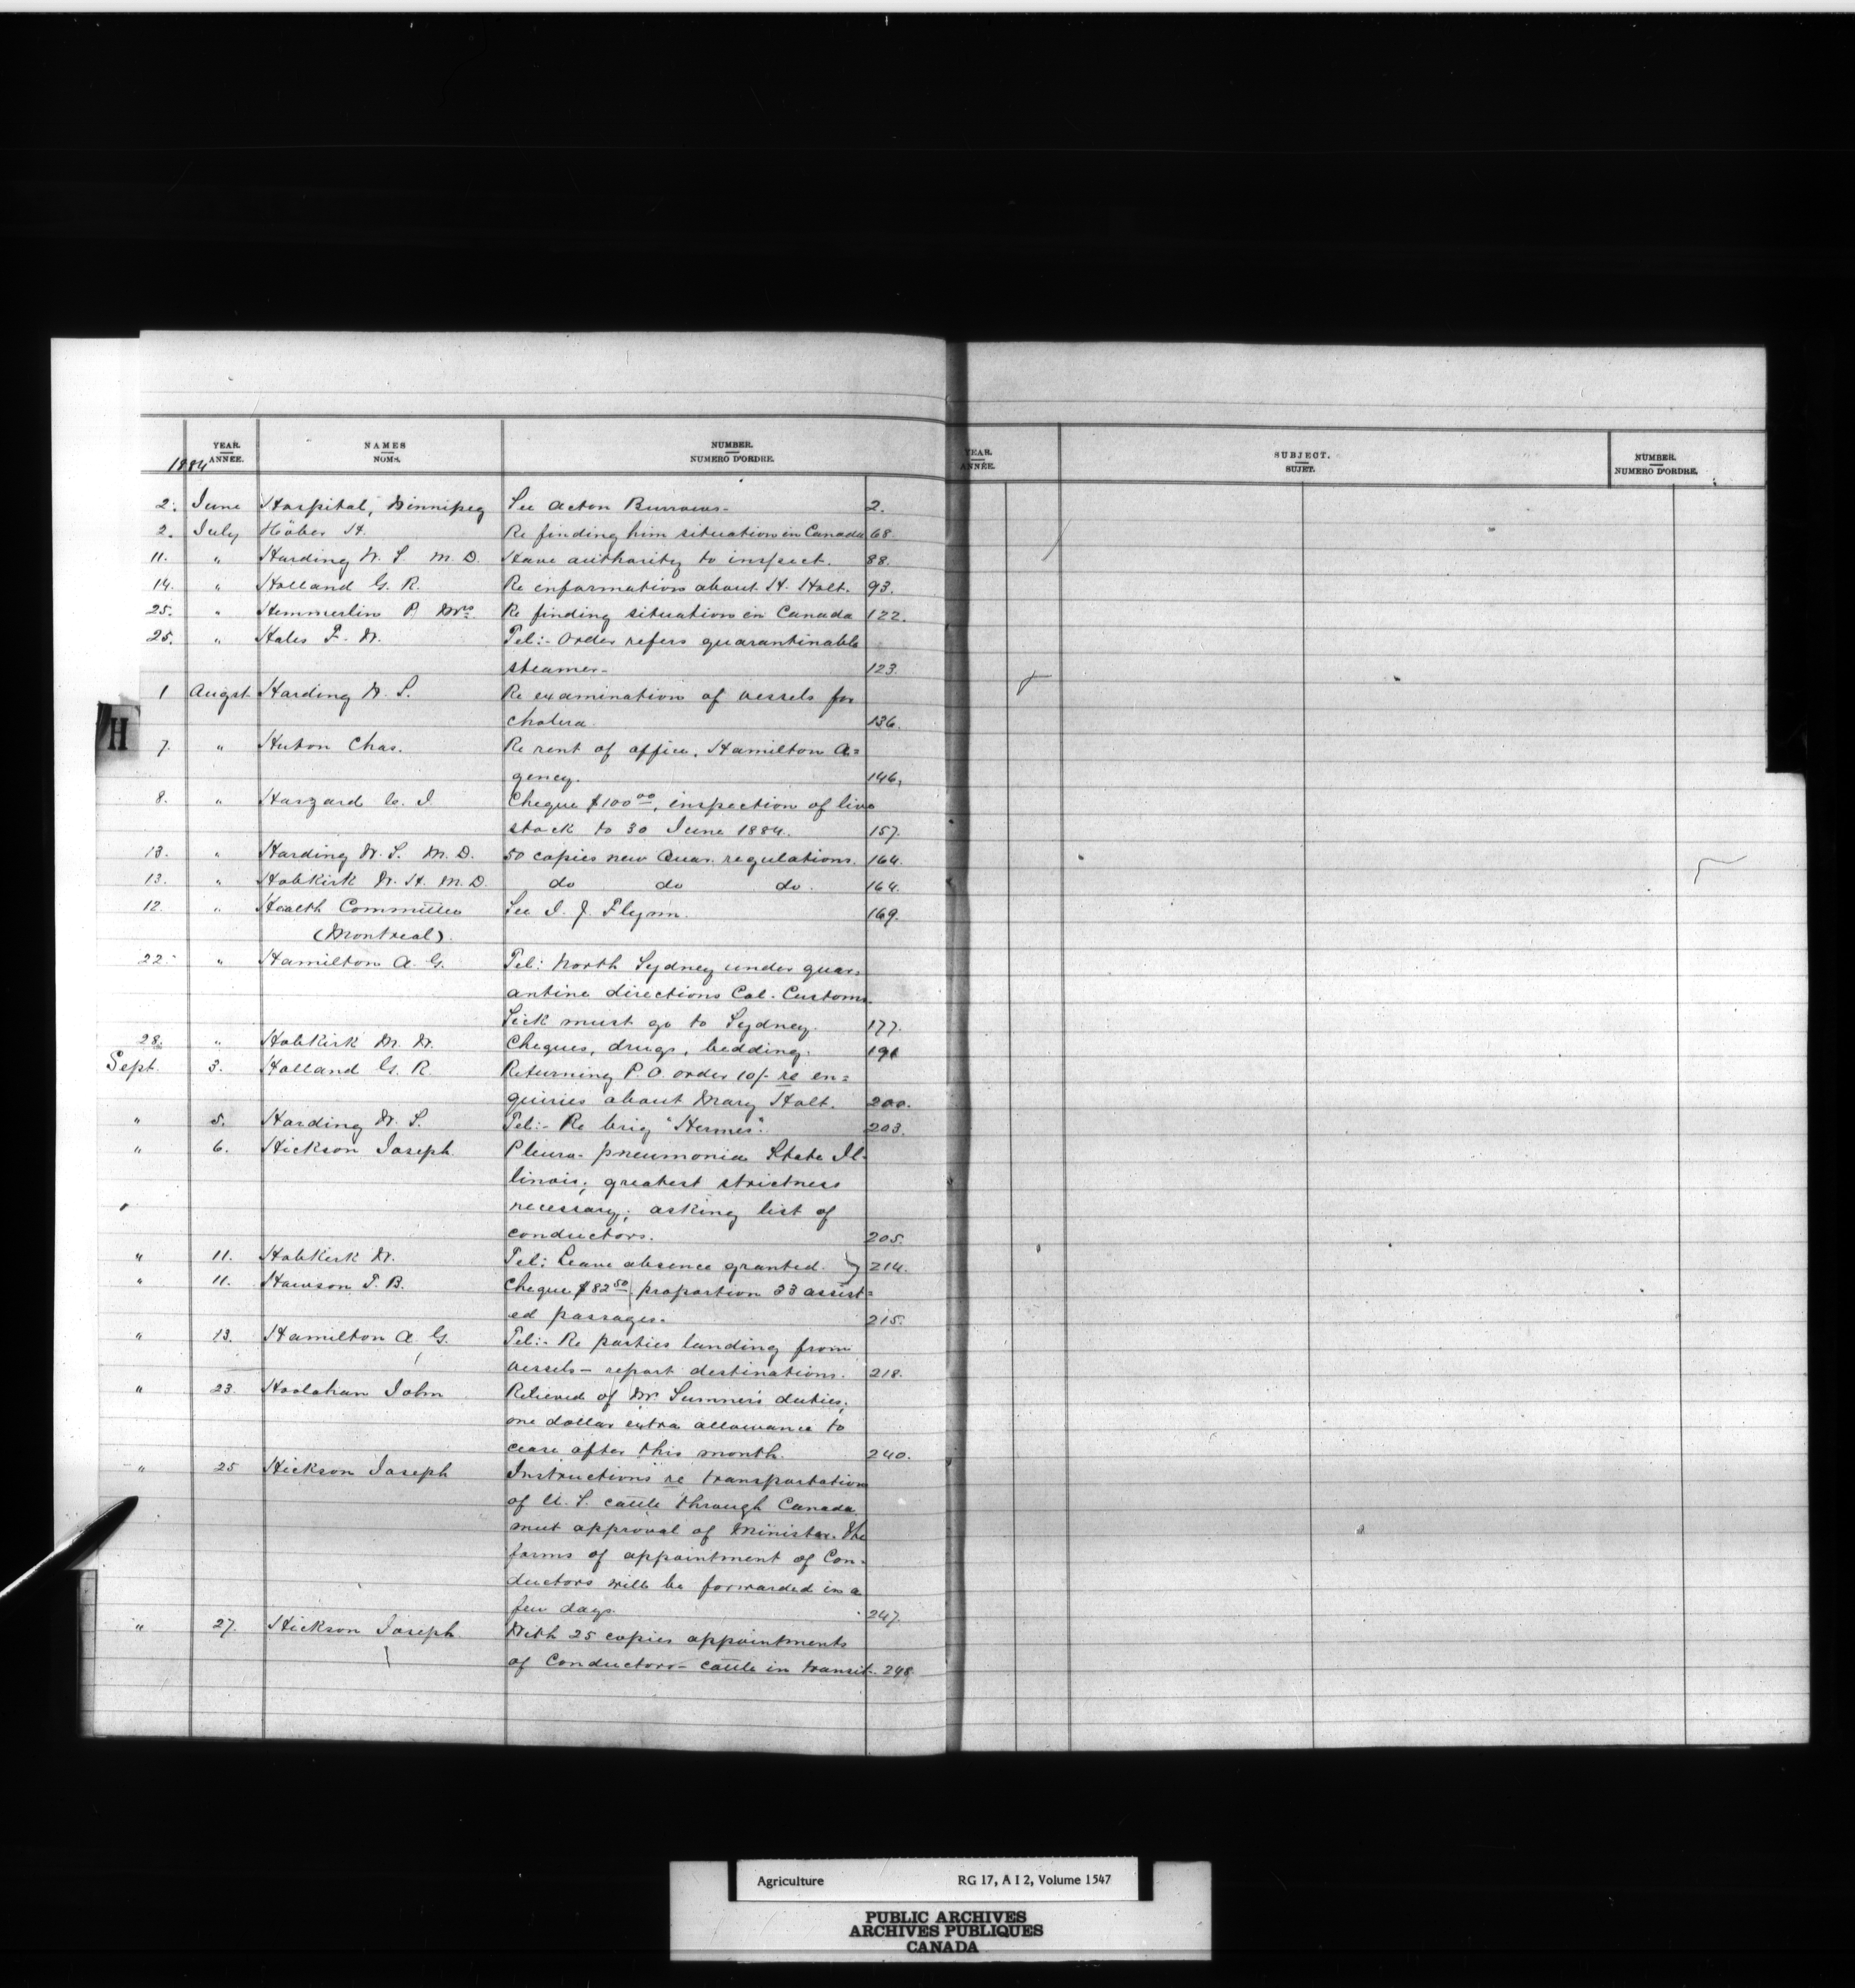 YEAR. ANNÉE. NAMES NOMS. NUMBER. NUMERO D'ORDRE.
1884
2. June Hospital, Winnipeg See Acton Burrows- 2.
2. July Höber H. Re finding him situation in Canada 68
11. " Harding W. S. M. D. Have authority to inspect. 88.
14. " Holland G. R. Re information about H. Holt. 93.
25. " Hemmerlin P. Mrs Re finding situation in Canada 122.
25. " Hales F. W. Tel:- Order refers quarantinable
steamer- 123
1 Augst Harding W. S. Re examination of vessels for
cholera 136.
7. " Huton Chas. Re rent of office, Hamilton A=
gency. 146,
8. " Haszard C. I. Cheque $100 00, inspection of live
stock to 30 June 1884. 157.
13. " Harding W. S. M. D. 50 copies new Quar. regulations. 164.
13. " Hobkirk W. H. M. D. do do do. 164.
12. " Health Committee See I. J. Flynn. 169.
(Montreal).
22. " Hamilton A. G. Tel: North Sydney under quar=
antine directions Col. Customs.
Sick must go to Sydney. 177.
28. " Hobkirk M. W. Cheques, drugs, bedding. 191
Sept. 3. Holland G. R. Returning P. O. order 10/- re en=
quiries about Mary Holt. 200.
" 5. Harding W. S. Tel:- Re brig "Hermes". 203.
" 6. Hickson Joseph Pleuro-pneumonia State Il-
linois; greatest strictness
necessary; asking list of
conductors. 205.
" 11. Hobkirk W. Tel: Leave absence granted. 214.
" 11. Hawson T. B. Cheque $82 50 proportion 33 assist=
ed passages. 215.
" 13. Hamilton A. G. Tel:- Re parties landing from
vessels - report destinations. 218.
" 23. Hoolahan John Relieved of Mr. Sumner's duties;
one dollar extra allowance to
cease after this month. 240.
" 25 Hickson Joseph Instructions re transportation
of U. S. cattle through Canada
meet approval of Minister. The
forms of appointment of Con-
ductors will be forwarded in a
few days. 247.
" 27. Hickson Joseph. With 25 copies appointments
of Conductors - cattle in transit. 248.
H
YEAR. ANNÉE. SUBJECT. SUJET. NUMBER. NUMERO D'ORDRE.
Agriculture RG 17, A I 2, Volume 1547
PUBLIC ARCHIVES
ARCHIVES PUBLIQUES
CANADA